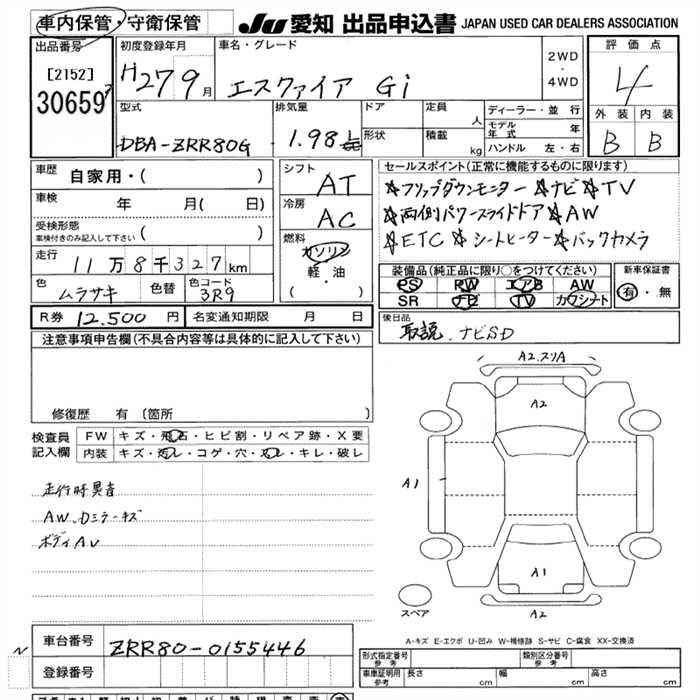 車内保管・守衛保管 JU 愛知 出品申込書 JAPAN USED CAR DEALERS ASSOCIATION
出品番号 初度登録年月 車名・グレード 2WD ・ 4WD 評価点
[2152] H27 9月 エスクァイア Gi 4
30659
型式 排気量 ドア 定員 人 ディーラー・並行 外装 内装
DBA-ZRR80G 1.98 形状 積載 kg モデル年式 年 B B
ハンドル 左・右
車歴 自家用・( ) シフト AT セールスポイント(正常に機能するものに限ります)
車検 年 月( 日) 冷房 AC ☆フリップダウンモニター ☆ナビ☆TV
受検形態 車検付きのみ記入して下さい ( ) ☆両側パワースライドドア☆AW
走行 11万8千327km 燃料 ガソリン 軽・油 ( ) ☆ETC ☆シートヒーター☆バックカメラ
色 ムラサキ 色替 色コード 3R9 装備品(純正品に限り○をつけてください) 新車保証書
PS PW エアB AW 有・無
SR ナビ TV カワシート
R券 12,500円 名変通知期限 月 日 後日品
取説、ナビSD
注意事項申告欄(不具合内容等は具体的に記入して下さい)
A2.スリA
A2
修復歴 有(箇所 )
検査員記入欄 FW キズ・飛石・ヒビ割・リペア跡・X要
内装 キズ・汚レ・コゲ・穴・スレ・キレ・破レ
A1
走行時異音
AW、Dミラーキズ
ボディAU
A1
スペア A2
A-キズ E-エクボ U-凹み W-補修跡 S-サビ C-腐食 XX-交換済
N 車台番号 ZRR80-0155446
登録番号
形式指定番号 参考 類別区分番号 参考
車庫証明用 参考 長さ cm 幅 cm 高さ cm